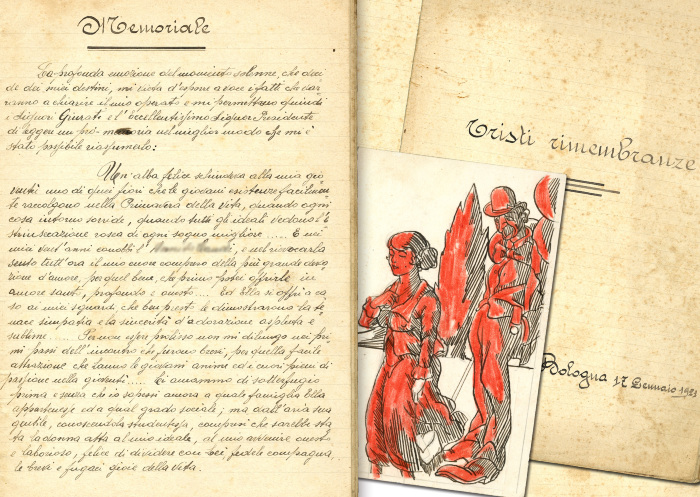 Memoriale
La profonda emozione del momento solenne, che deci
de dei miei destini, mi vieta d'esporre a voce i fatti che sar
ranno a chiarire il mio operato e mi permettano quindi
i Signori Giurati e l'Eccellentissimo Signor Presidente
di leggere un pro-memoria nel miglior modo che mi è
stato possibile riassumerlo:
Un'alba felice schiudeva alla mia gio
ventù uno di quei fiori che le giovani esistenze facilmen
te raccolgono nella Primavera della Vita, quando ogni
cosa intorno sorride, quando tutti gli ideali vedono l'E
strinsecazione rosea di ogni sogno migliore..... E nei
miei vent'anni conobbi l' e nel rievocarla
sento tutt'ora il mio cuore compreso della più grande devo
zione d'amore, per quel bene, che primo potei offrirle in
amore santo, profondo e onesto.... Ed Ella si offrì a ca
so ai miei sguardi che ben presto le dimostrarono la te
nace simpatia e la sincerità d'adorazione assoluta e
sublime..... Per non esser prolisso non mi dilungo nei pri
mi passi dell'incontro che furono brevi, per quella facile
attrazione che hanno le giovani anime ed i cuori pieni di
passione nella gioventù.... Ci amammo di sotterfugio
prima e senza che io sapessi ancora a quale famiglia Ella
appartenesse ed a qual grado sociale; ma dall'aria sua
gentile, conoscendola studentessa, compresi che sarebbe sta
ta la donna atta al mio ideale, al mio avvenire onesto
e laborioso, felice di dividere con lei, fedele compagna,
le brevi e fugaci gioie della vita.
Tristi rimembranze
Bologna 17 Gennaio 1921